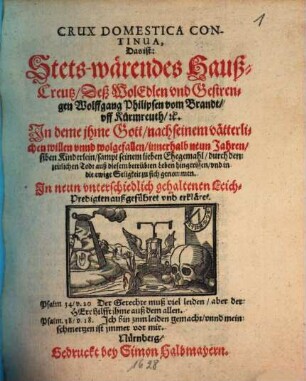 1
CRUX DOMESTICA CON-
TINUA,
Das ist:
Stets-wärendes Hauß-
Creutz/Deß WolEdlen vnd Gestren-
gen Wolffgang Philipsen vom Brandt/
vff Kürmreuth/ꝛc.
In deme jhme Gott/nach seinem vätterli-
chen willen vnnd wolgefallen/innerhalb neun Jahren/
siben Kinderlein/sampt seinem lieben Ehegemahl/durch den
zeitlichen Todt auß diesem betrübten leben hingerissen/vnd in
die ewige Seligkeit zu sich genommen.
In neun vnterschiedlich gehaltenen Leich-
Predigten außgeführet vnd erkläret.
Psalm 34/v.20 Der Gerecht muß viel leiden/aber der
HErr hilfft ihme auß dem allen.
Psalm. 38/v.18. Ich bin zum leiden gemacht/vnnd mein
schmertzen ist jmmer vor mir.
Nürnberg/
Gedruckt bey Simon Halbmayern.
1628